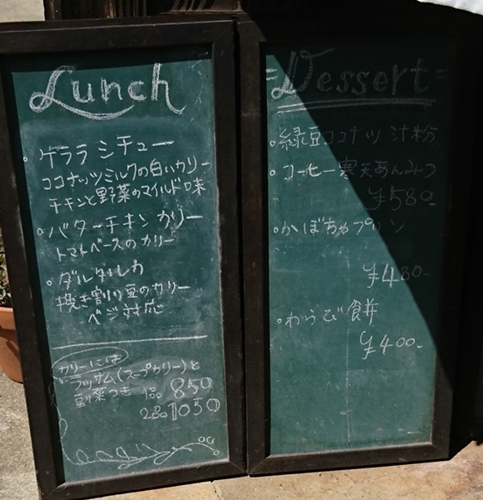 Lunch
・ケララ シチュー
ココナッツミルクの白いカリー
チキンと野菜のマイルド味
・バターチキン カリー
トマトベースのカリー
・ダルタルカ
挽き割り豆のカリー
ベジ対応
カリーには
ラッサム(スープカリー)と
副菜つき 1品 850
2品 1050
=Dessert=
・緑豆ココナツ 汁粉
・コーヒー寒天あんみつ
¥580-
・かぼちゃプリン
¥480-
・わらび餅
¥400-